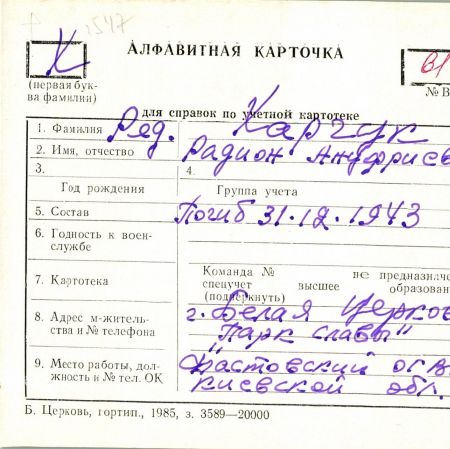 1547
АЛФАВИТНАЯ КАРТОЧКА
К
(первая бук-
ва фамилии)
№ В
для справок по учетной картотеке
1. Фамилия Ряд. Карчук
2. Имя, отчество Радион Ануфриев
3. 4.
Год рождения Группа учета
5. Состав Погиб 31.12.1943
6. Годность к воен-
службе
7. Картотека Команда № не предназначе
спецучет высшее образован
(подчеркнуть)
8. Адрес м-житель-
ства и № телефона г. Белая Церков
"Парк славы"
9. Место работы, дол-
жность и № тел. ОК Фастовский ОГВ
киевской обл.
Б. Церковь, гортип., 1985, з. 3589—20000